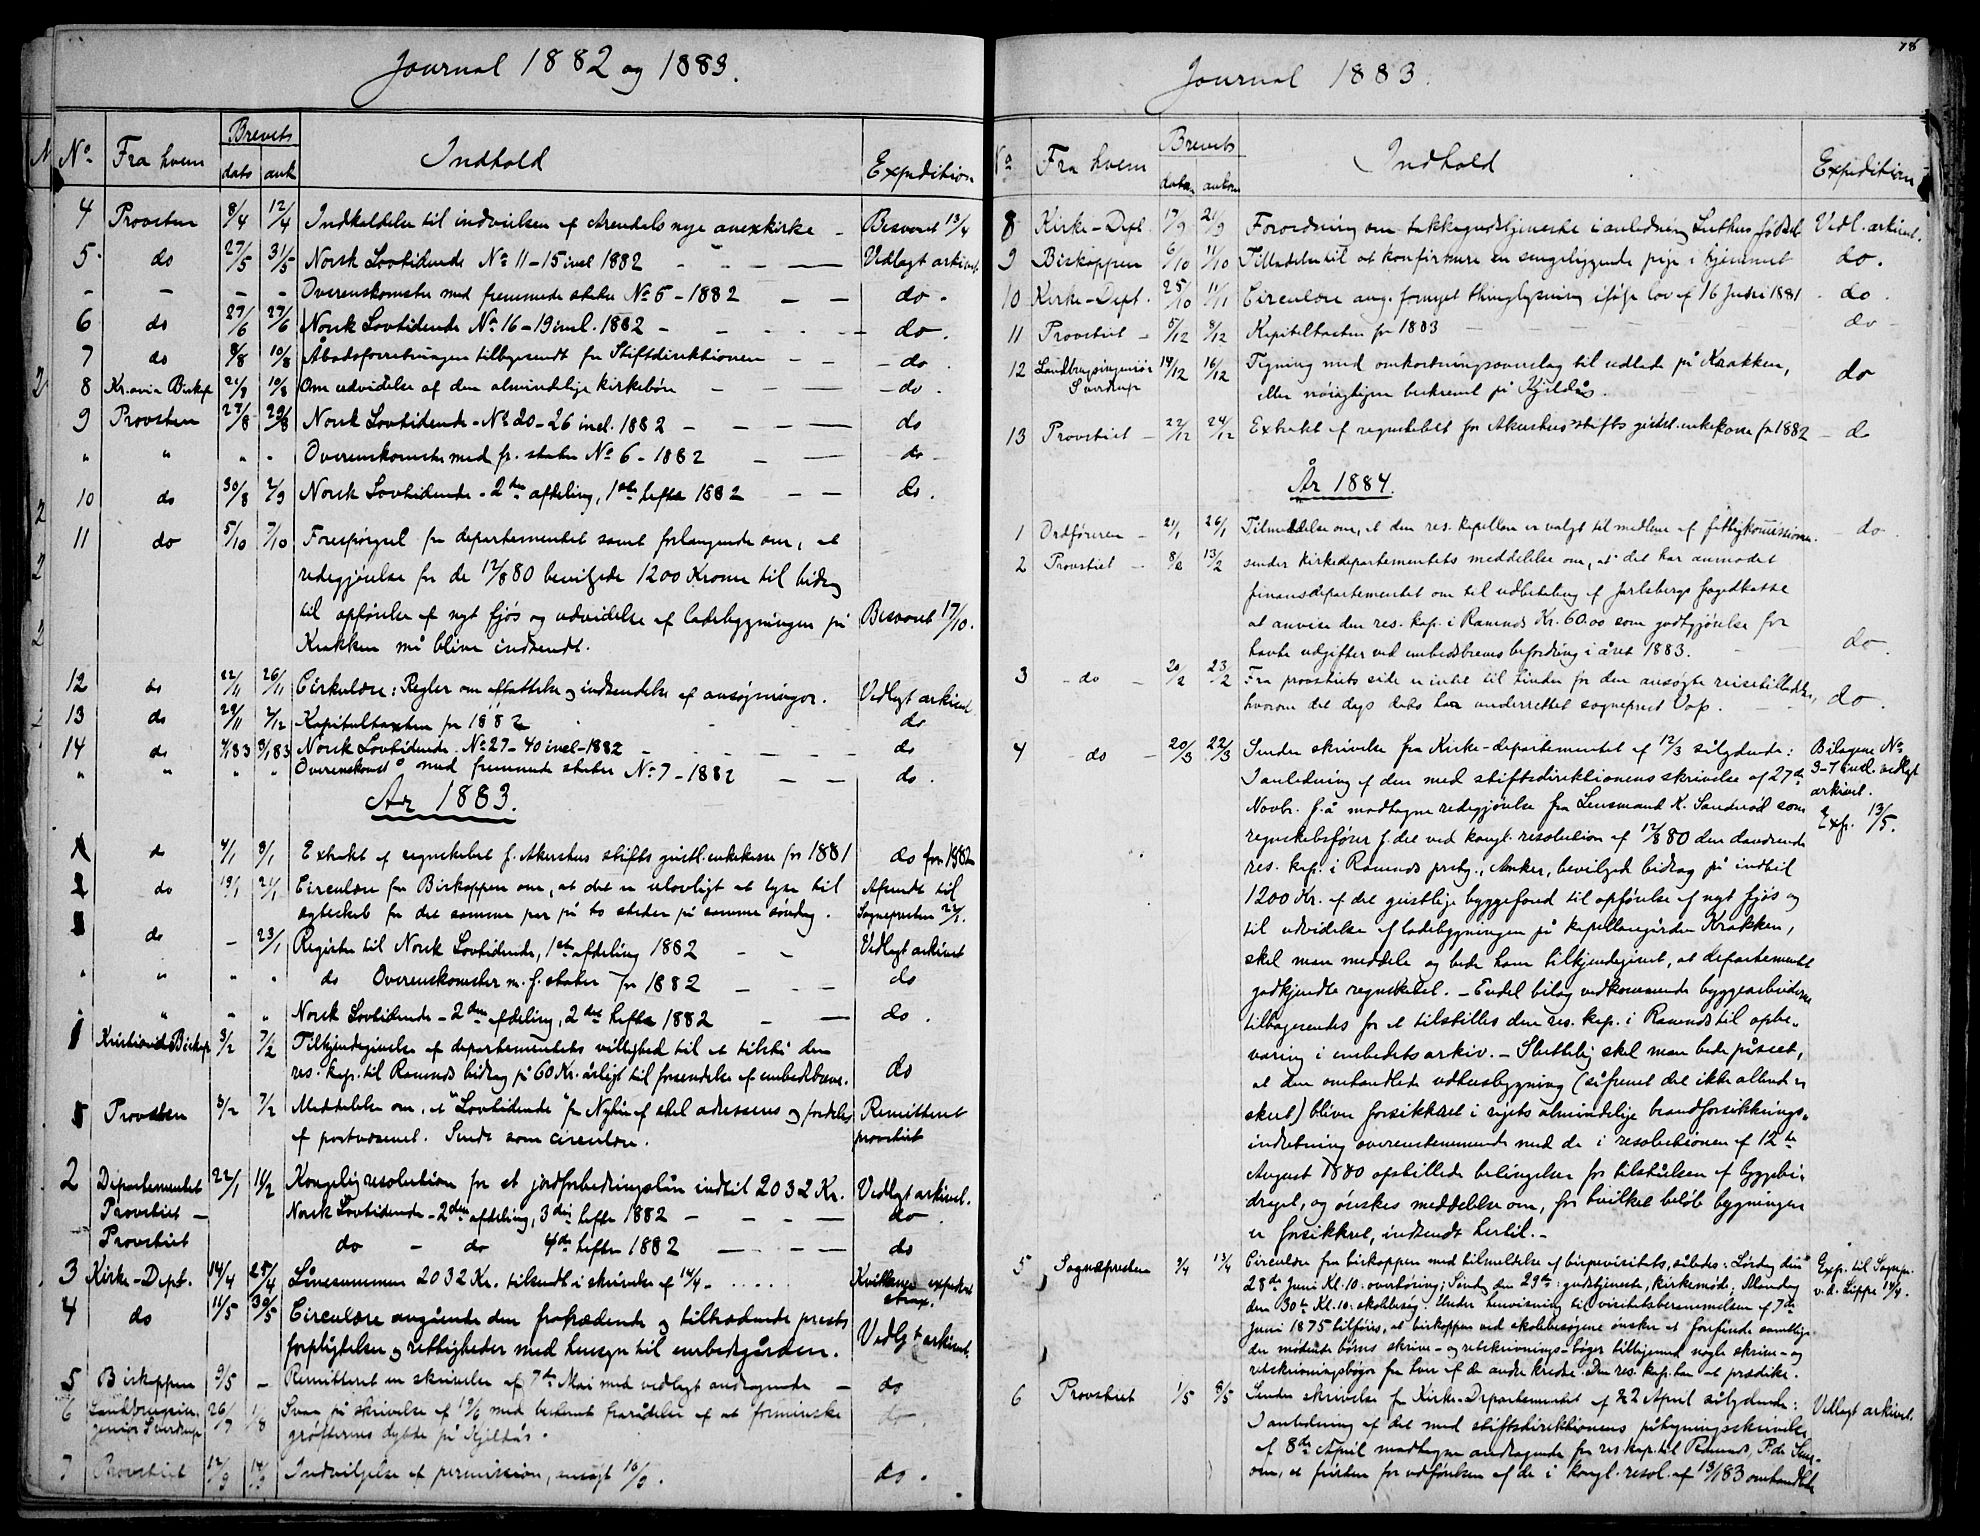 Journal 1882 og 1883.
No. Fra hvem Brevets dato ank Indhold Expedition
4 Provsten 8/4 12/4 Indkaldelse til indvielsen af Arendals nye anexkirke - Besvaret 13/4
5. do 27/5 31/5 Norsk Lovtidende No 11-15 incl 1882 - - - Vedlagt arkivet
- - - - Overenskomster med fremmede stater No 5 - 1882 - - do -
6 do 27/6 29/6 Norsk Lovtidende No 16-19 incl. 1882 - - - do.
7 do 8/8 10/8 Åbodsforretningen tilbagesendt fra Stiftdirektionen - - do
8 Kr.ania Biskop 21/8 Om udvidelse af den almindelige kirkebøn - - - do -
9 Provsten 27/8 29/8 Norsk Lovtidende - No 20-26 incl. 1882 - - - do
" " " " Overenskomster med fr. stater No 6 - 1882 - - do -
10 do 30/8 2/9 Norsk Lovtidende - 2den afdeling, 1ste hefte 1882 - - do.
11 do 5/10 7/10 Forespørgsel fra departementet samt forlangende om, at
redegjørelse for de 12/8 80 bevilgede 1200 Kroner til bidrag
til opførelse af nyt fjøs og udvidelse af ladebygningen på Besvaret 17/10.
Krakken må blive indsendt.
12 do 22/11 26/11 Cirkulære: Regler om affattelse og indsendelse af ansøgninger. Vedlagt arkivet
13 do 29/11 2/12 Kapitelstaxten for 1882 do
14 do Norsk Lovtidende No 27-40 incl - 1882 - - - do
" " " " Overenskomst med fremmede stater No 7 - 1882 - - do.
År 1883.
1 do 4/1 9/1 Extrakt af regnskabet f. Akershus stifts geistl. enkekasse for 1881 do
2 do 19/1 21/1 Circulære fra Biskoppen om, at det er ulovligt at lyse til Afsendt til
ægteskab for det samme par på to steder på samme søndag. Sognepresten 22/1.
do - 23/1 Register til Norsk Lovtidende, 1ste afdeling 1882 - - Vedlagt arkivet
" " " " do Overenskomster m. f. stater for 1882 - - - do
" " " Norsk Lovtidende - 2den afdeling, 2det hefte 1882 - - do.
1 Kristiania Biskop 3/2 7/2 Tilkjendegivelse af departementets villighed til at tilstå den
res. kap. til Ramnæs bidrag på 60 Kr. årligt til forsendelse af embedsbreve. do
Provsten 3/2 7/2 Meddelelse om, at "Lovtidende" fra Nytår af skal adresseres og fordeles Remitteret
af postvæsenet. Sendt som circulære. provstiet
2 Departementet 22/1 16/2 Kongelig resolution for et jordforbedringslån indtil 2032 Kr. Vedlagt arkivet.
Provstiet - Norsk Lovtidende - 2den afdeling, 3die hefte 1882 - - - do
- Provstiet do - do 4de hefte 1882 - - - do
3 Kirke-Dept. 14/4 25/4 Lånesummen 2032 Kr. tilsendt i skrivelse af 14/4 - .... Kvitteret expederet strax.
4 do 11/5 30/5 Circulære angående den fratrædende og tiltrædende prests
forpligtelser og rettigheder med hensyn til embedsgården. Vedlagt arkivet.
5 Biskoppen 9/5 - Remitteret en skrivelse af 7de Mai med vedlagt andragende - do
6 Landbrugsin- 26/7 1/8 Svar på skrivelse af 19/6 med bestemt frarådelse af at forminske do
geniør Sverdrup grøfternes dybde på Kjeldås.
7 Provstiet 12/9 14/9 Indvilgelse af permission, ansøgt 10/9. do.
78
Journal 1883.
No Fra hvem Brevets dato ankom Indhold Expedition
8 Kirke-Dept. 17/9 21/9 Forordning om takkegudstjeneste i anledning Luthers fødsel Vedl. arkivet.
9 Biskoppen 6/10 11/10 Tilladelse til at konfirmere en sengeliggende pige i hjemmet do.
10 Kirke-Dept. 25/10 11/11 Circulære ang. fornyet thinglysning ifølge lov af 16 Juni 1881 - do
11 Provstiet - 5/12 8/12 Kapitelstaxten for 1883 - - - do -
12 Landbrugsingeniør 14/12 16/12 Tegning med omkostningsoverslag til udlade på Krakken,
Sverdrup eller nøiagtigere beskrevet på Kjeldås. - - do
13 Provstiet - 22/12 24/12 Extrakt af regnskabet for Akershus stifts geistl. enkekasse for 1882 - do
År 1884.
1 Ordføreren - 21/1 26/1 Tilmeldelse om, at den res. kapellan er valgt til medlem af fattigkommissionen. - do.
2 Provstiet - 8/2 13/2 sender kirkedepartementets meddelelse om, at det har anmodet
finansdepartementet om til udbetaling af Jarlsbergs fogedkasse
at anvise den res. kap. i Ramnæs Kr. 60.00 som godtgjørelse for
havte udgifter ved embedsbreves befordring i året 1883. - do.
3 - do - 20/2 23/2 Fra provstiets side er intet til hinder for den ansøgte reisetilladelse,
hvorom det dags dato har underrettet sogneprest Vap. - - do.
4 do - 20/3 22/3 Sender skrivelse fra Kirke-departementet af 12/3 sålydende: Bilagene No
I anledning af den med stiftsdirektionens skrivelse af 27de 3-7 incl. vedlagt
Novbr. f. å modtagne redegjørelse fra Lensmand K. Sanderød som arkivet.
regnskabsfører f. det ved kongl. resolution af 12/8 80 den daværende Exp. 13/5.
res. kap. i Ramnæs prstg., Anker, bevilgede bidrag på indtil
1200 Kr. af det geistlige byggefond til opførelse af nyt fjøs og
til udvidelse af ladebygningen på kapellangården Krakken,
skal man meddele og bede ham tilkjendegivet, at departementet
godkjendte regnskabet. - Endel bilag vedkommende byggearbeiderne
tilbagesendes for at tilstilles den res. kap. i Ramnæs til opbe-
varing i embedets arkiv. - Sluttelig skal man bede påseet,
at den omhandlede udhusbygning (såfremt det ikke allerede er
skeet) bliver forsikkret i rigets almindelige brandforsikkrings-
indretning overenstemmende med de i resolutionen af 12te
August 1880 opstillede betingelser for tilståelsen af byggebi-
draget, og ønskes meddelelse om, for hvilket beløb bygningen
er forsikkret, indsendt hertil. -
5 Sognepresten 9/4 13/4 Circulære fra biskoppen med tilmeldelse af bispevisitats, således: Lørdag den Exp. til Sognepr.
28de Juni Kl. 10. overhøring; Søndag den 29te: gudstjeneste, kirkemøde; Mandag v. d. Lippe 14/4.
den 30te Kl. 10. skolebesøg. Under henvisning til visitatsberammelsen af 7de
Juni 1875 tilføies, at biskoppen ved skolebesøgene ønsker at forefinde samtlige
de mødende børns skrive- og retskrivnings-bøger tilligemed nogle skrive- og
retskrivningsbøger fra hver af de andre kredse. Den res. kap. har at prædike.
6 Provstiet 1/5 8/5 Sender skrivelse fra Kirke-Departementet af 22 April sålydende:
I anledning af det med stiftsdirektionens påtegningsskrivelse Vedlagt arkivet.
af 8de April modtagne andragende fra res. kap. til Ramnæs,
om, at fristen for udførelsen af de i kongl. resol. af 13/1 83 omhandlede